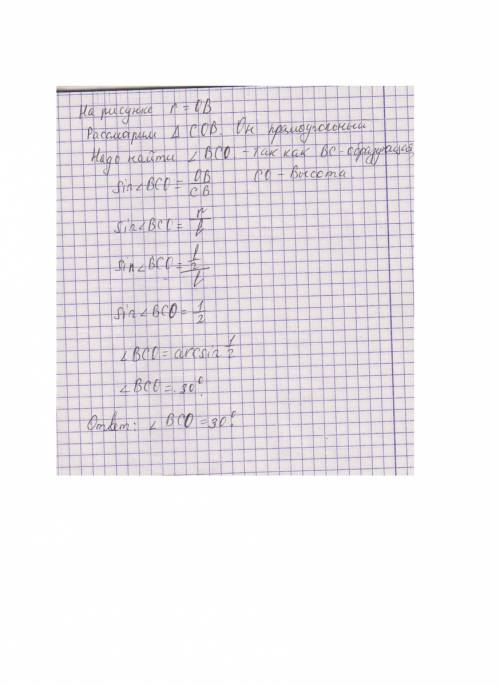 На рисунке r = OB
Рассмотрим Δ COB. Он прямоугольный
Надо найти ∠BCO - Так как BC - образующая,
sin∠BCO = OB/CB CO - Высота
sin∠BCO = r/l
sin∠BCO = (l/2)/l
sin∠BCO = 1/2
∠BCO = arcsin 1/2
∠BCO = 30°.
Ответ: ∠BCO = 30°.